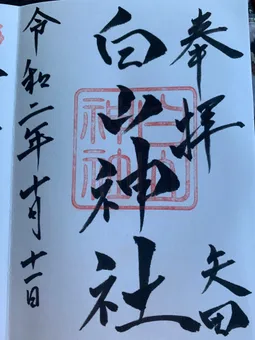 奉拝
矢田
白山神社
白山神社
令和二年十月十一日